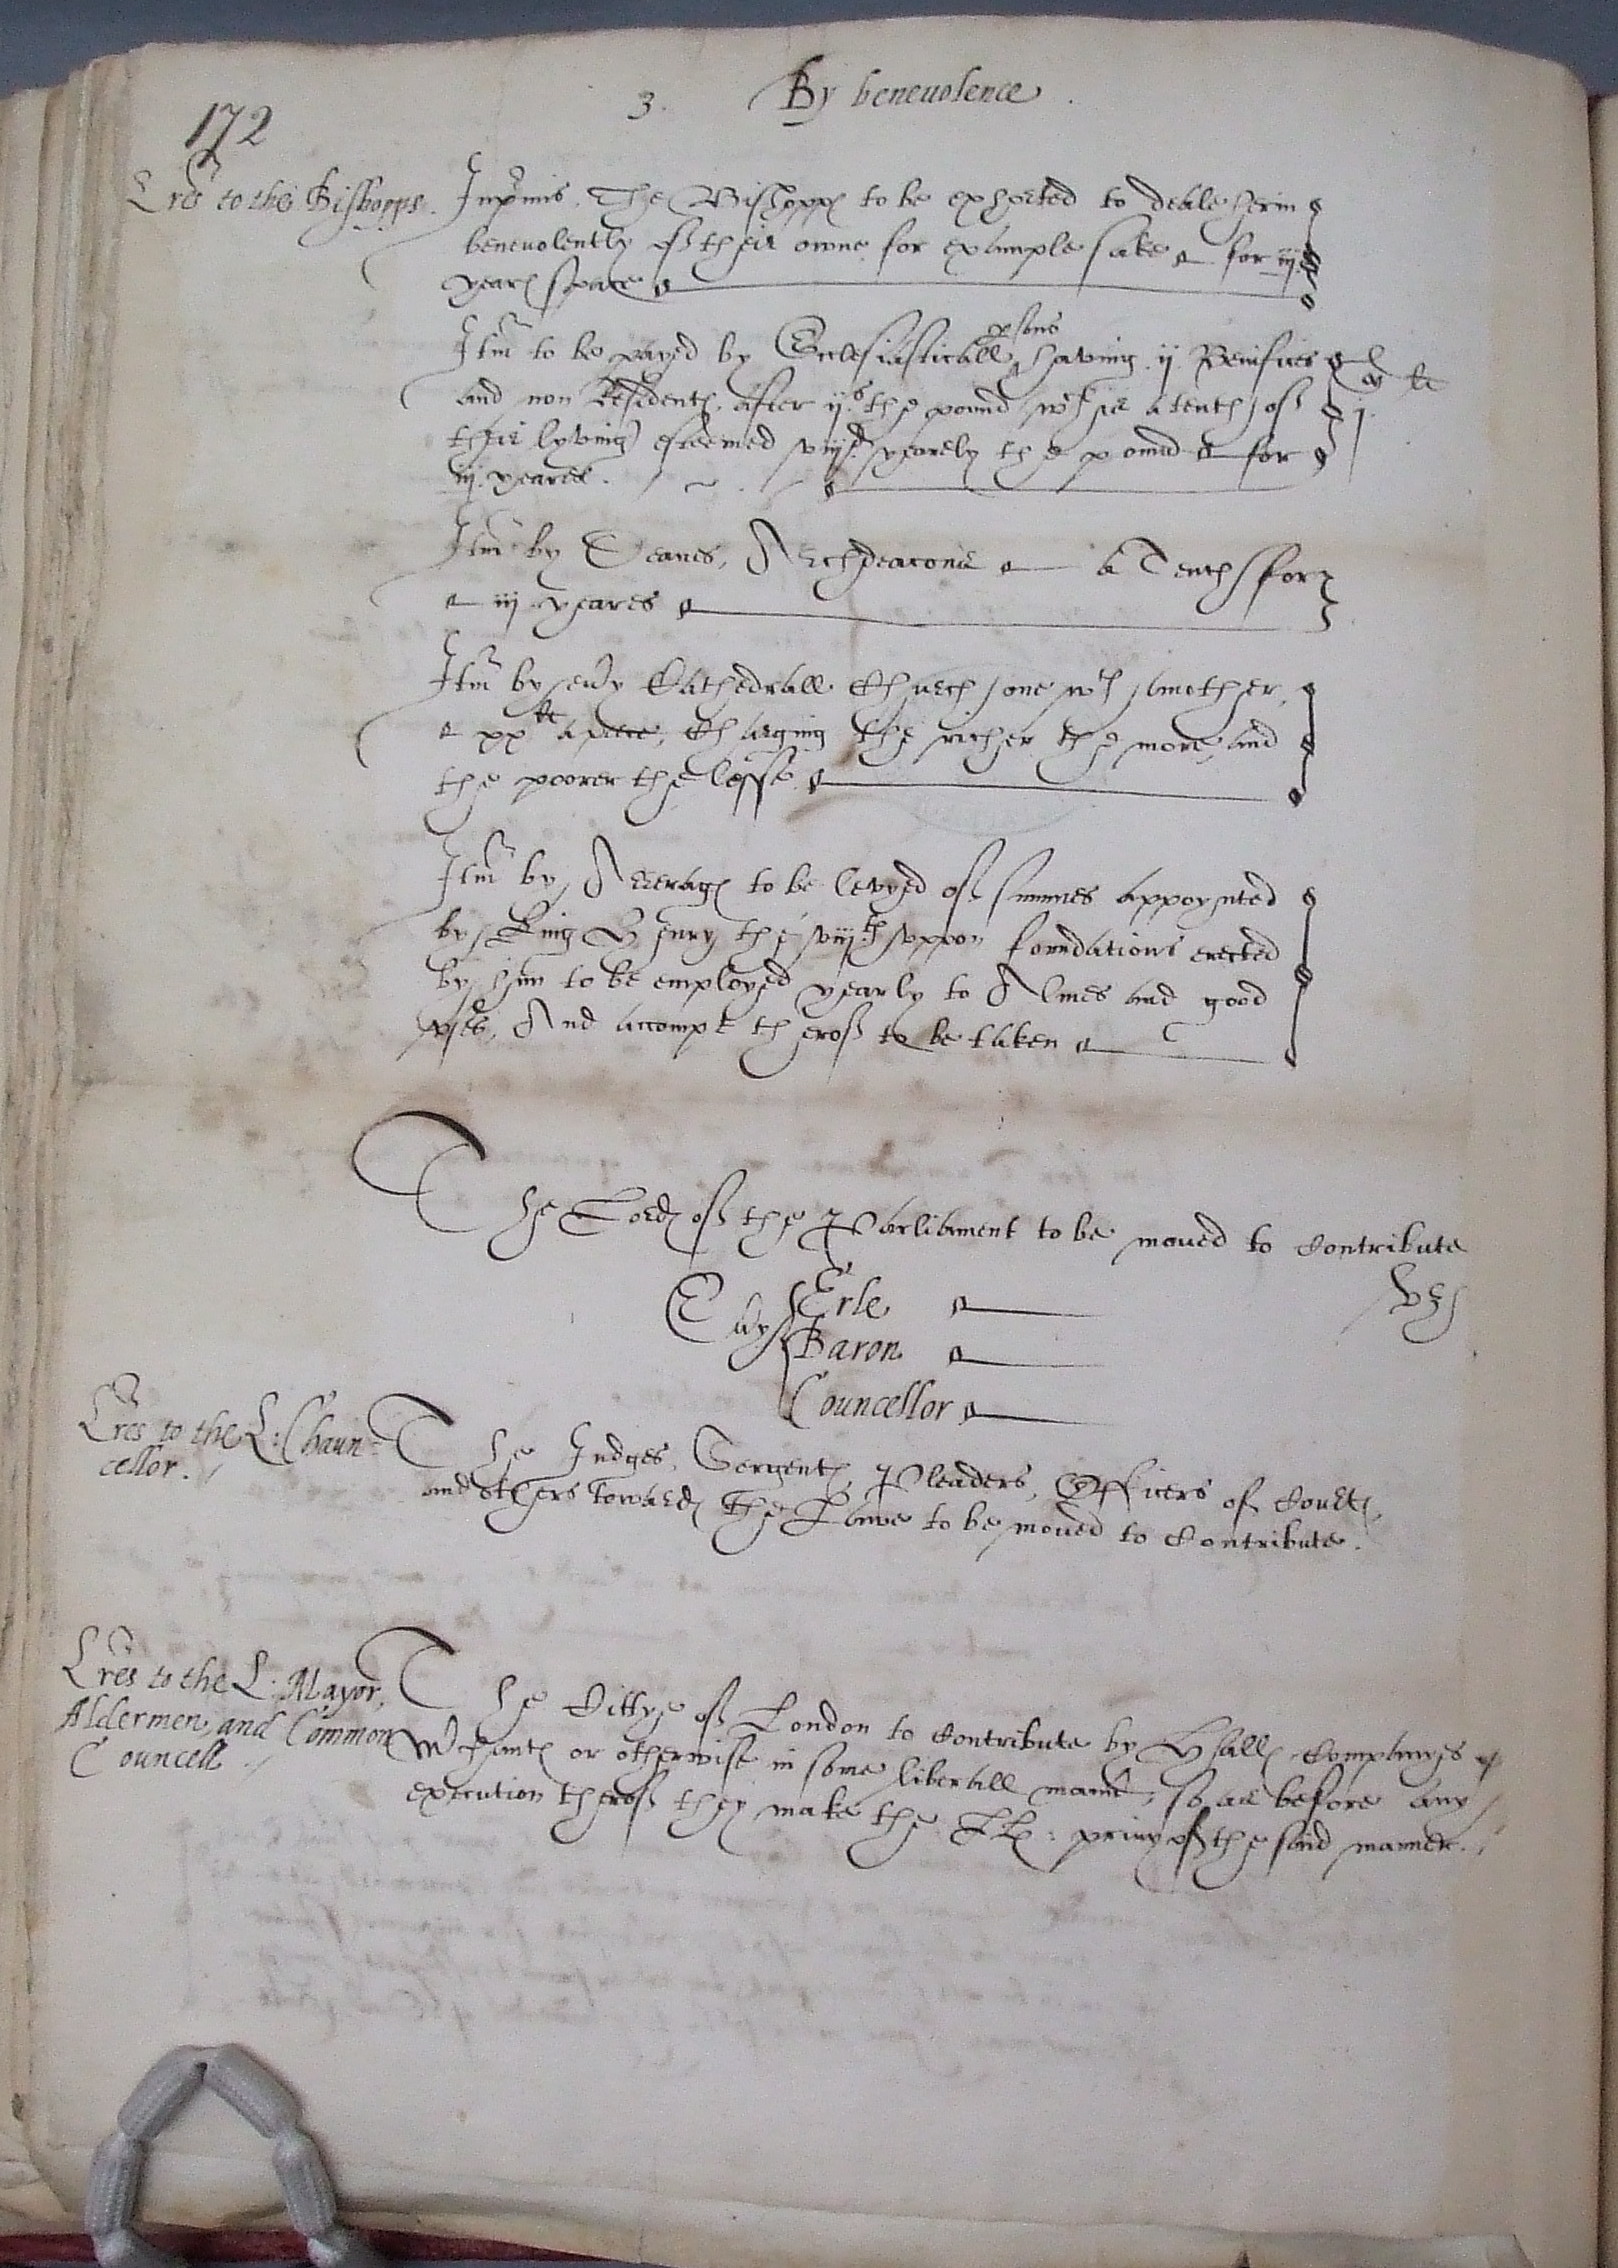 3. By beneuolence.
172
Lr̃es to the Bishopps.
Inp̃mis. The Bisshopps to be exhorted to deale herin
benevolently of their owne for example sake for iij
yeares space
p̱sons
Itm̃ to be payed by Ecclesiasticall ‸ having ij. Benifices
and non Residents. after ij.s the pound wch is a tenth of
their lyving esteemed viij.d yearely the pound for
iij. yeares.
Itm̃ by Deanes, Archdeacons a Tenth for
iij yeares
Itm̃ by ev̾y Cathedrall Church one wth another,
xxli a peece, Charging the richer the more, and
the poorer the lesse
Itm̃ by Arerages to be levyed of summes appoynted
by King Henry the viij.th vppon foundations erected
by him to be employed yearly to Almes and good
vses, And accompt therof to be taken
The Lords of the Parliament to be moued to Contribute
Ev̾y Erle
Baron
Councellor
Lr̃es to the L: Chaun-
cellor.
The Judges, Sergents, Pleaders, Officers of Courts,
and others towards the Lawe to be moued to Contribute.
Lr̃es to the L: Mayor,
Aldermen, and Common
Councell.
The Cittye of London to Contribute by Halls Companyes
Mr̃chants or otherwise in some liberall mann̾, so as before any
execution therof they make the LL: privy of the said manner.